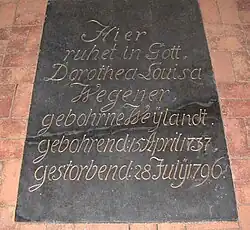 Hier
ruhet in Gott,
Dorothea Louisa
Wegener
gebohrne Seÿlandt.
gebohrend: 15 April 1737.
gestorbend: 28 Julÿ 1796.